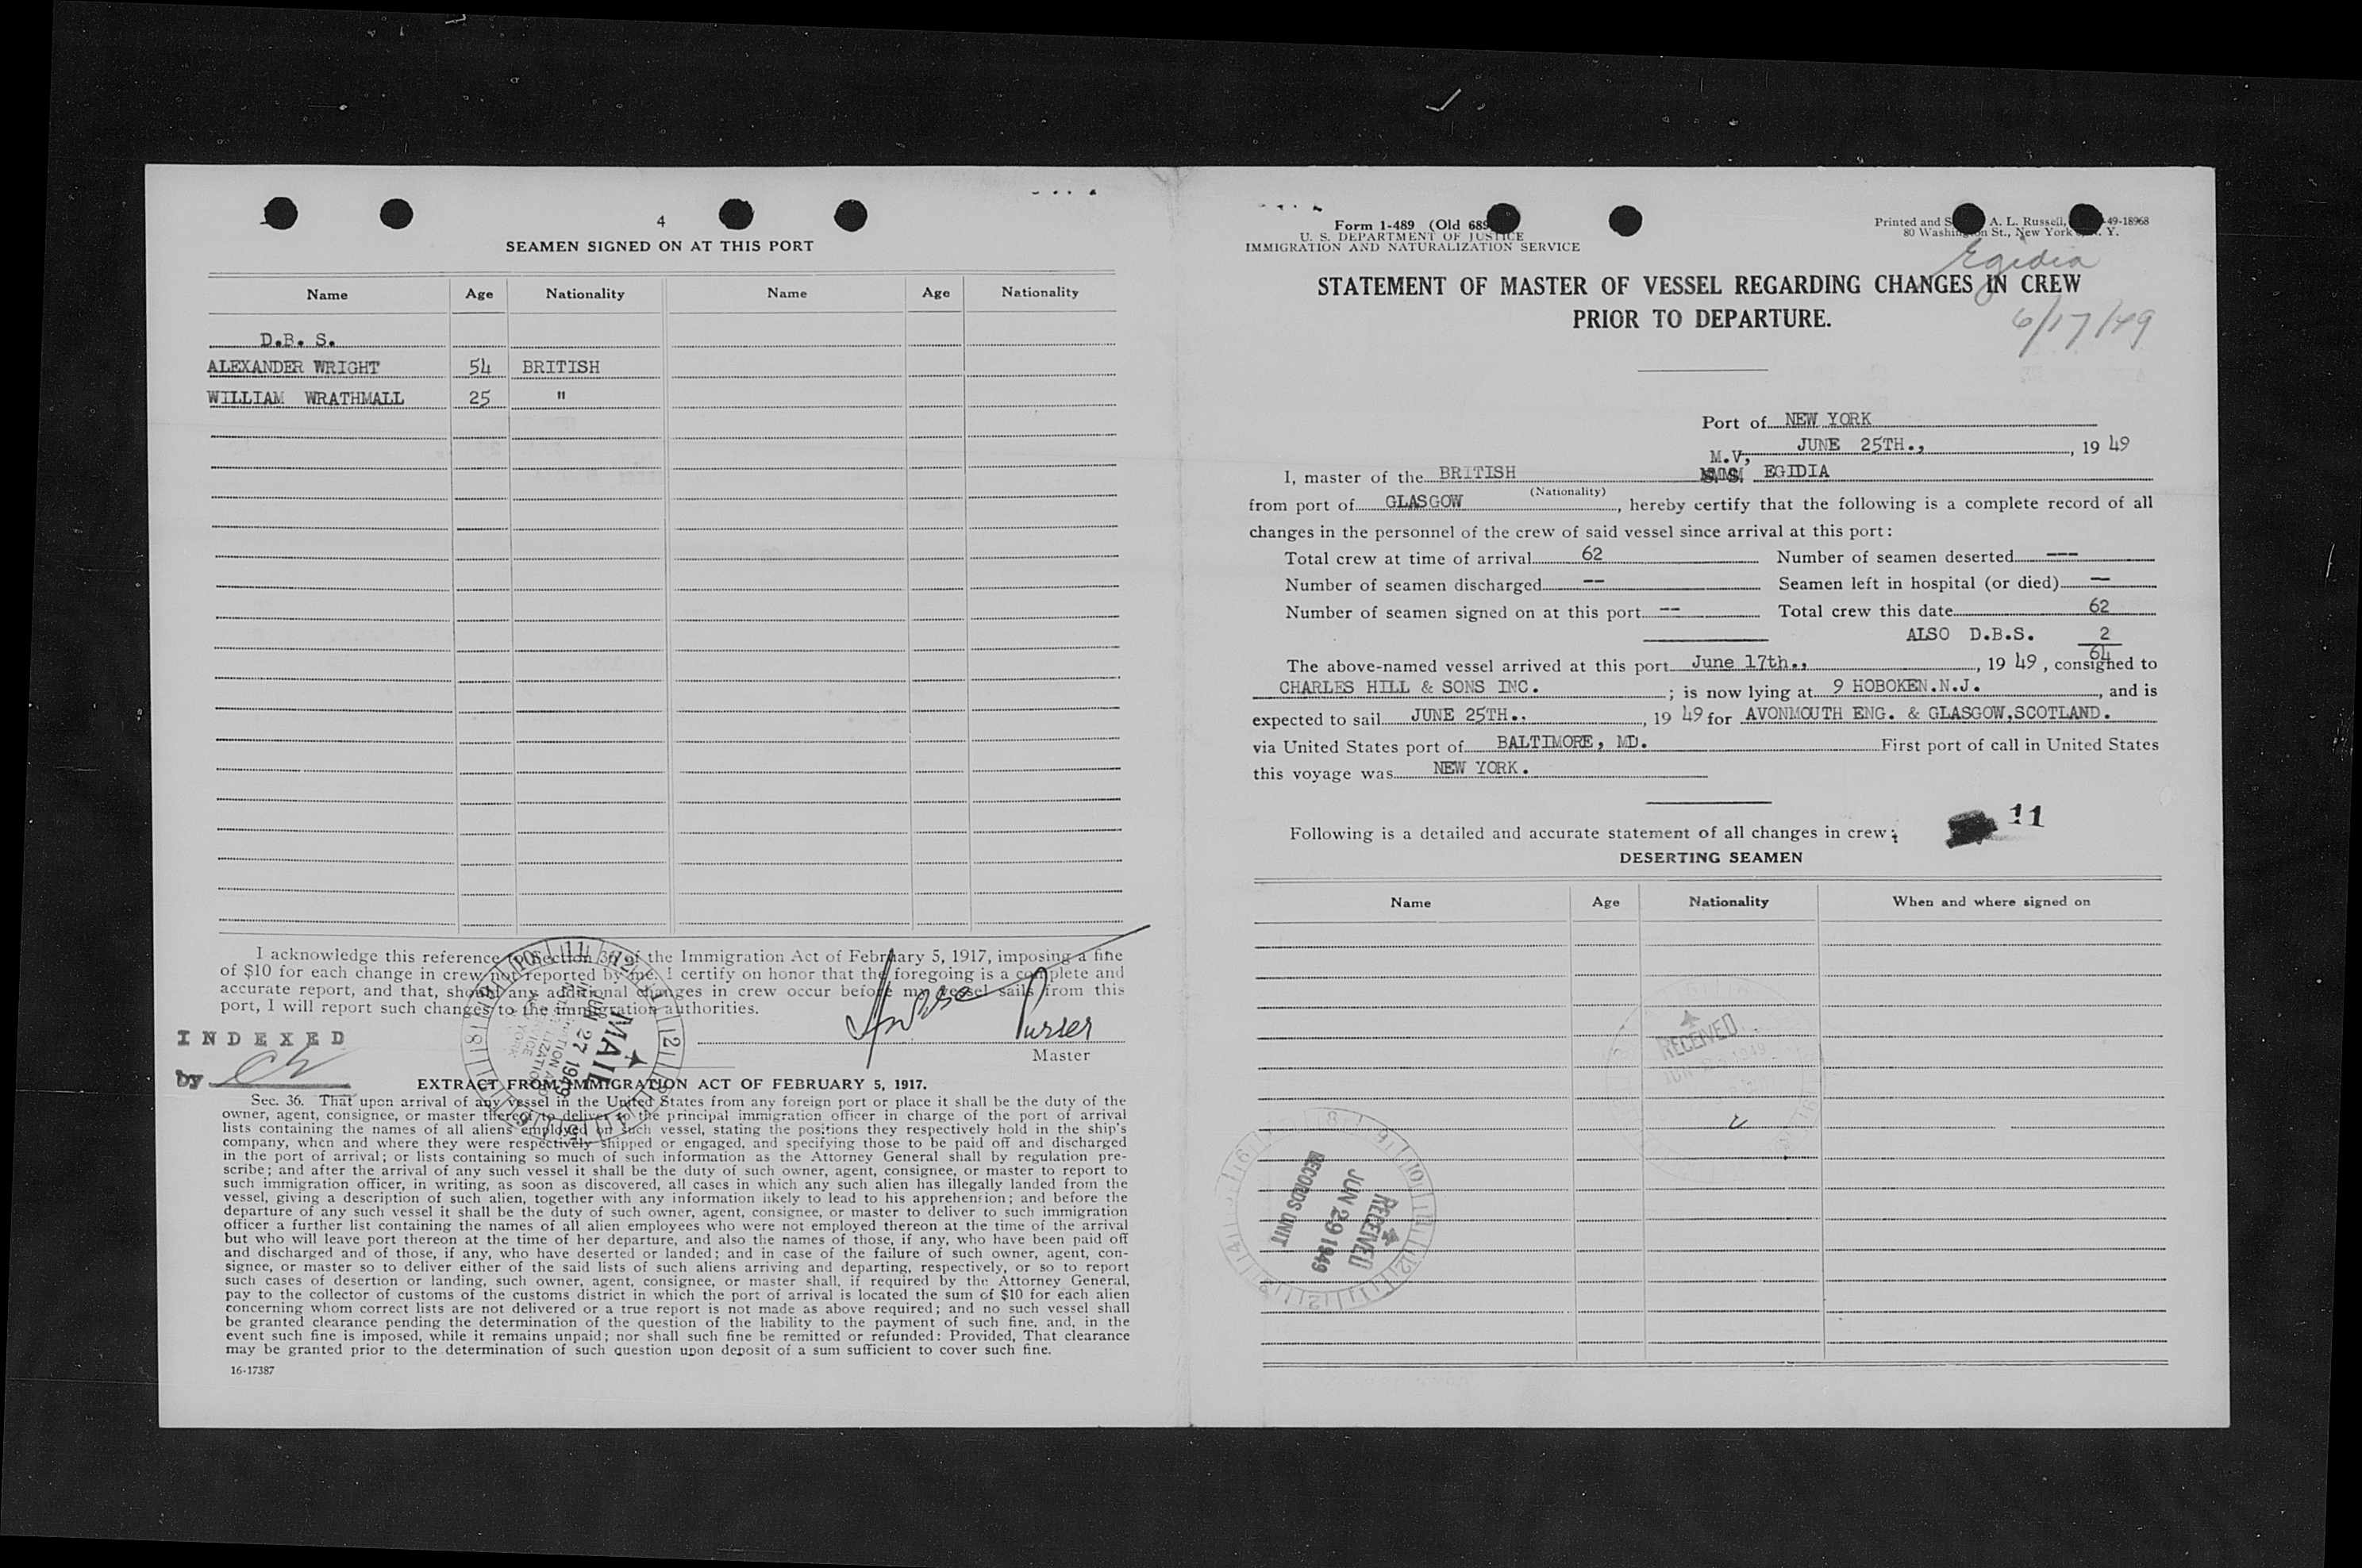 4
SEAMEN SIGNED ON AT THIS PORT
Name Age Nationality Name Age Nationality
D.B. S.
ALEXANDER WRIGHT 54 BRITISH
WILLIAM WRATHMALL 25 "
I acknowledge this reference to Section 36 of the Immigration Act of February 5, 1917, imposing a fine
of $10 for each change in crew not reported by me. I certify on honor that the foregoing is a complete and
accurate report, and that, should any additional changes in crew occur before my vessel sails from this
port, I will report such changes to the immigration authorities.
INDEXED
by
Purser
Master
MAIL
JUN 27 1949
EXTRACT FROM IMMIGRATION ACT OF FEBRUARY 5, 1917.
Sec. 36. That upon arrival of any vessel in the United States from any foreign port or place it shall be the duty of the
owner, agent, consignee, or master thereof to deliver to the principal immigration officer in charge of the port of arrival
lists containing the names of all aliens employed on such vessel, stating the positions they respectively hold in the ship's
company, when and where they were respectively shipped or engaged, and specifying those to be paid off and discharged
in the port of arrival; or lists containing so much of such information as the Attorney General shall by regulation pre-
scribe; and after the arrival of any such vessel it shall be the duty of such owner, agent, consignee, or master to report to
such immigration officer, in writing, as soon as discovered, all cases in which any such alien has illegally landed from the
vessel, giving a description of such alien, together with any information likely to lead to his apprehension; and before the
departure of any such vessel it shall be the duty of such owner, agent, consignee, or master to deliver to such immigration
officer a further list containing the names of all alien employees who were not employed thereon at the time of the arrival
but who will leave port thereon at the time of her departure, and also the names of those, if any, who have been paid off
and discharged and of those, if any, who have deserted or landed; and in case of the failure of such owner, agent, con-
signee, or master so to deliver either of the said lists of such aliens arriving and departing, respectively, or so to report
such cases of desertion or landing, such owner, agent, consignee, or master shall, if required by the Attorney General,
pay to the collector of customs of the customs district in which the port of arrival is located the sum of $10 for each alien
concerning whom correct lists are not delivered or a true report is not made as above required; and no such vessel shall
be granted clearance pending the determination of the question of the liability to the payment of such fine, and, in the
event such fine is imposed, while it remains unpaid; nor shall such fine be remitted or refunded: Provided, That clearance
may be granted prior to the determination of such question upon deposit of a sum sufficient to cover such fine.
16-17387
Form I-489 (Old 689
U. S. DEPARTMENT OF JUSTICE
IMMIGRATION AND NATURALIZATION SERVICE
Printed and S A. L. Russell, -49-18968
80 Washington St., New York , N. Y.
Egidia
6/17/49
STATEMENT OF MASTER OF VESSEL REGARDING CHANGES IN CREW
PRIOR TO DEPARTURE.
Port of NEW YORK
JUNE 25TH., , 19 49
M.V,
I, master of the BRITISH EGIDIA
(Nationality)
from port of GLASGOW , hereby certify that the following is a complete record of all
changes in the personnel of the crew of said vessel since arrival at this port:
Total crew at time of arrival 62 Number of seamen deserted ---
Number of seamen discharged -- Seamen left in hospital (or died) —
Number of seamen signed on at this port -- Total crew this date 62
ALSO D.B.S. 2
64
The above-named vessel arrived at this port June 17th., , 19 49 , consigned to
CHARLES HILL & SONS INC. ; is now lying at 9 HOBOKEN.N.J. , and is
expected to sail JUNE 25TH., , 19 49 for AVONMOUTH ENG. & GLASGOW,SCOTLAND.
via United States port of BALTIMORE, MD. First port of call in United States
this voyage was NEW YORK.
11
Following is a detailed and accurate statement of all changes in crew:
DESERTING SEAMEN
Name Age Nationality When and where signed on
RECEIVED
RECEIVED
JUN 29 1949
RECORDS UNIT